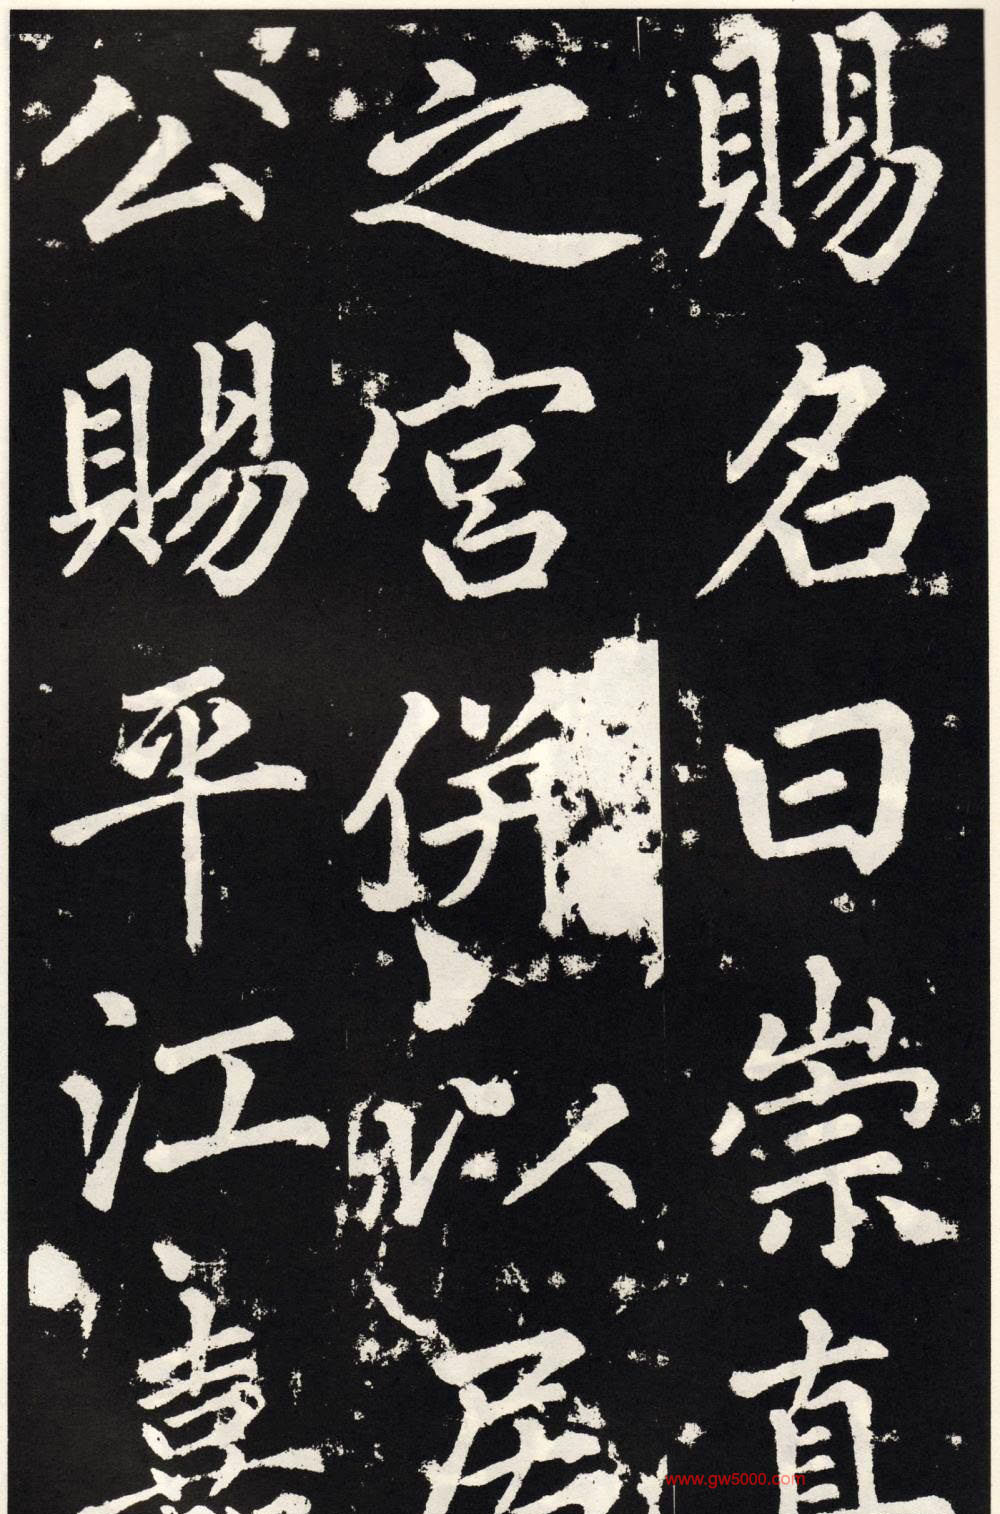 賜名曰崇真
之宮併以居
公賜平江嘉
www.gw5000.com